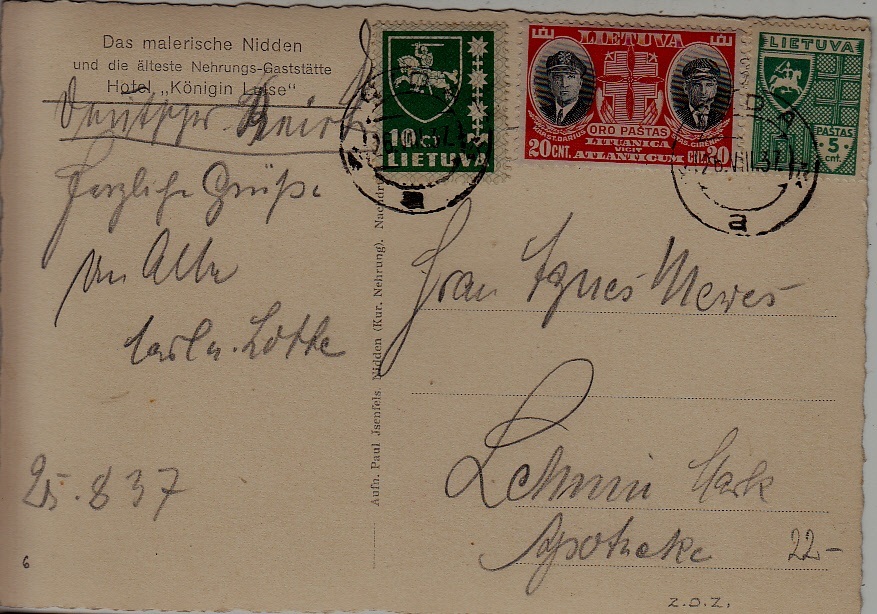 Das malerische Nidden
und die älteste Nehrungs-Gaststätte
Hotel „Königin Luise"
Deutsches Reich
Herzliche Grüße
an Alle
Carl u. Lotte
25.8 37
6
Aufn. Paul Jsenfels, Nidden (Kur. Nehrung). Nachdr
10 cnt.
LIETUVA
LIETUVA
KAPT. ST. DARIUS
ORO PAŠTAS
20 CNT.
LITUANICA
VICIT
ATLANTICUM
CNT. 20
LIETUVA
PAŠTAS
5
cnt.
26.VIII.37
a
a
Frau Agnes Mewes
Lehnin Mark
Apotheke
22-
Z.D.Z.